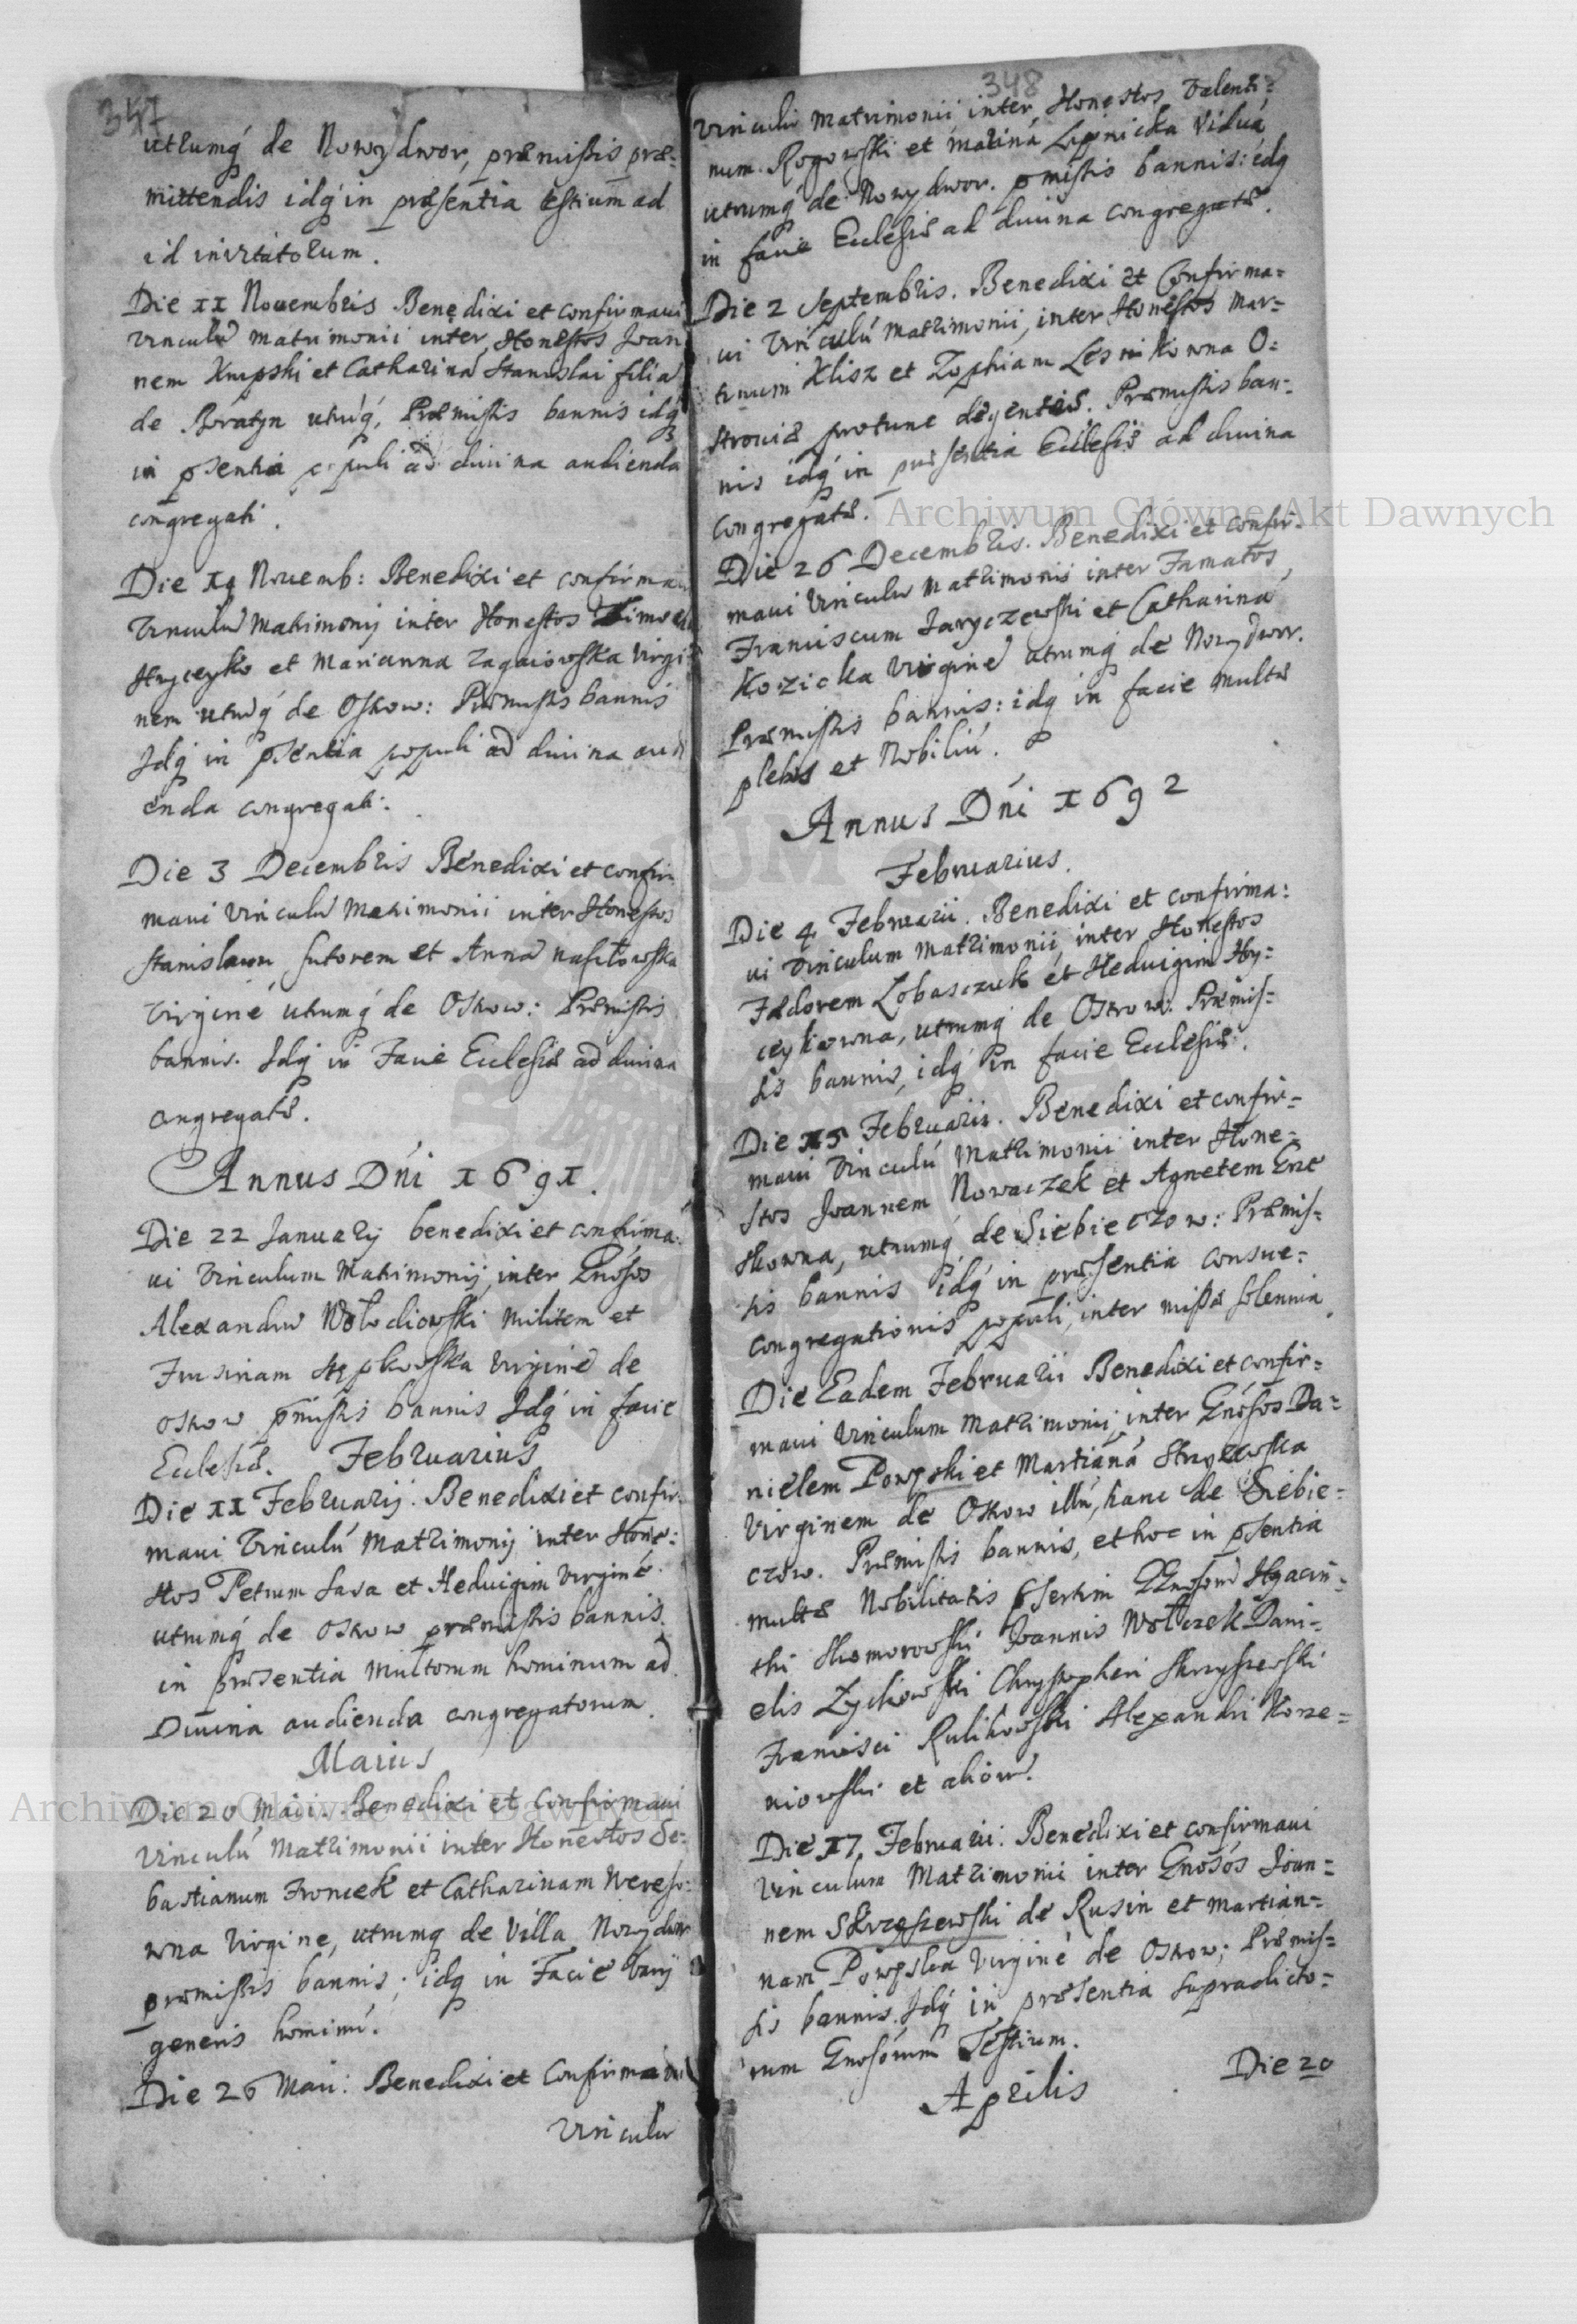 347
utrumq́ de Nowydwor, præmissis præ-
mittendis idq́ in præsentia testium ad
id invitatorum.
Die 11 Nouembris Benedixi et confirmaui
vinculū matrimonii inter Honestos Joan
nem Krupski et Catharinā Stanislai filiā
de Boratyn utruq́, Præmissis bannis idq́
in psentia populi ad diuina audienda
congregati.
Die Nouemb: Benedixi et confirmaui
Vinculū Matrimonij inter Honestos
Hryceyko et Marianna Zagaiowska Virgi
nem utruq́ de Ostrow: Præmissis bannis
Idq́ in psentia populi ad diuina audi
enda congregati.
Die 3 Decembris Benedixi et confir
maui vinculū Matrimonii inter Honestos
Stanislaum sutorem et Annā
Virginē utrumq́ de Ostrow: Præmissis
bannis. Idq́ in Facie Ecclesiæ ad diuina
congregatæ.
Annus Dńi 1691.
Die 22 Januarij benedixi et confirma:
ui Vinculum Matrimonij inter Gnósos
Alexandrū Wołodiowski Militem et
virginē de
Ostrow pmissis bannis Idq́ in facie
Ecclesiæ. Februarius
Die 11 Februarij. Benedixi et confir-
maui Vinculú Matrimonij inter Hone:
stos Petrum Sava et Heduigim virginē
utrumq́ de Ostrow præmissis bannis
in præsentia multorum hominum ad
Diuina audienda congregatorum.
Maius
Die 20 Maii. Benedixi et Confirmaui
Vinculú Matrimonii inter Honestos Se-
bastianum Froncek et Catharinam Wereso:
wna Virgine, utrumq de Villa Nowydwor
præmissis bannis; idq in Facie varij
generis hominú.
Die 26 Maii: Benedixi et Confirmaui
Vinculū
348
Vinculū Matrimonii inter Honestos Valenti-
num Rogowski et Mariná Lipnicka Viduá
utrumq́ de Nowydwor. pmissis bannis: idq
in facie Ecclesiæ ad diuina congregatæ.
Die 2 Septembris. Benedixi et Confirma-
ui Vinculú Matrimonii, inter Honestos Mar-
tinum Klisz et Zophiam Lesnikowna O:
stroviæ protunc degentes. Præmissis ban-
nis idq́ in præsentia Ecclesiæ ad diuina
congregatæ.
Die 26 Decembris. Benedixi et confir-
maui Vinculū Matrimonii inter Famatos
Franciscum Jaryczewski et Catharinā
Kozicka Virginē utrumq́ de Nowydwor.
Præmissis bannis: idq in facie multæ
plebis et Nobiliú.
Annus Dńi 1692
Februarius.
Die 4 Februarii. Benedixi et confirma:
ui Vinculum Matrimonii inter Honestos
Fædorem Lobasczuk et Heduigim Hry-
ceykowna, utrumq́ de Ostrow: Præmis-
sis bannis, idq́ in facie Ecclesiæ.
Die 15 Februarii. Benedixi et confir-
maui Vinculú Matrimonii inter Hone-
stos Joannem Nowaczek et Agnetem
utrumq́ de Siebieczow: Præmis-
sis bannis idq́ in præsentia consue-
congregationis populi, inter missæ solennia.
Die Eadem Februarii Benedixi et confir-
maui Vinculum Matrimonii inter Gnósos Da-
nielem Powpski et Martianā
Virginem de Ostrow illú, hanc de Siebie-
czow. Præmissis bannis, et hoc in psentia
multæ Nobilitatis psertim GGnosorū Hyacin-
thi Skomorowski Joannis Wołczek Dani-
elis Zyckowski Chrystopheri Skrzyszewski
Francisci Rulikowski Alexandri Korze-
niowski et aliorū.
Die 17 Februarii. Benedixi et confirmaui
Vinculum Matrimonii inter Gnósos Joan-
nem Skrzeszewski de Rusin et Martian-
nam Powpska Virginē de Ostrow; Præmis-
sis bannis. Idq́ in præsentia supradicto-
rum Gnosórum Testium.
Aprilis
Die 20
Archiwum Główne Akt Dawnych
Archiwum Główne Akt Dawnych